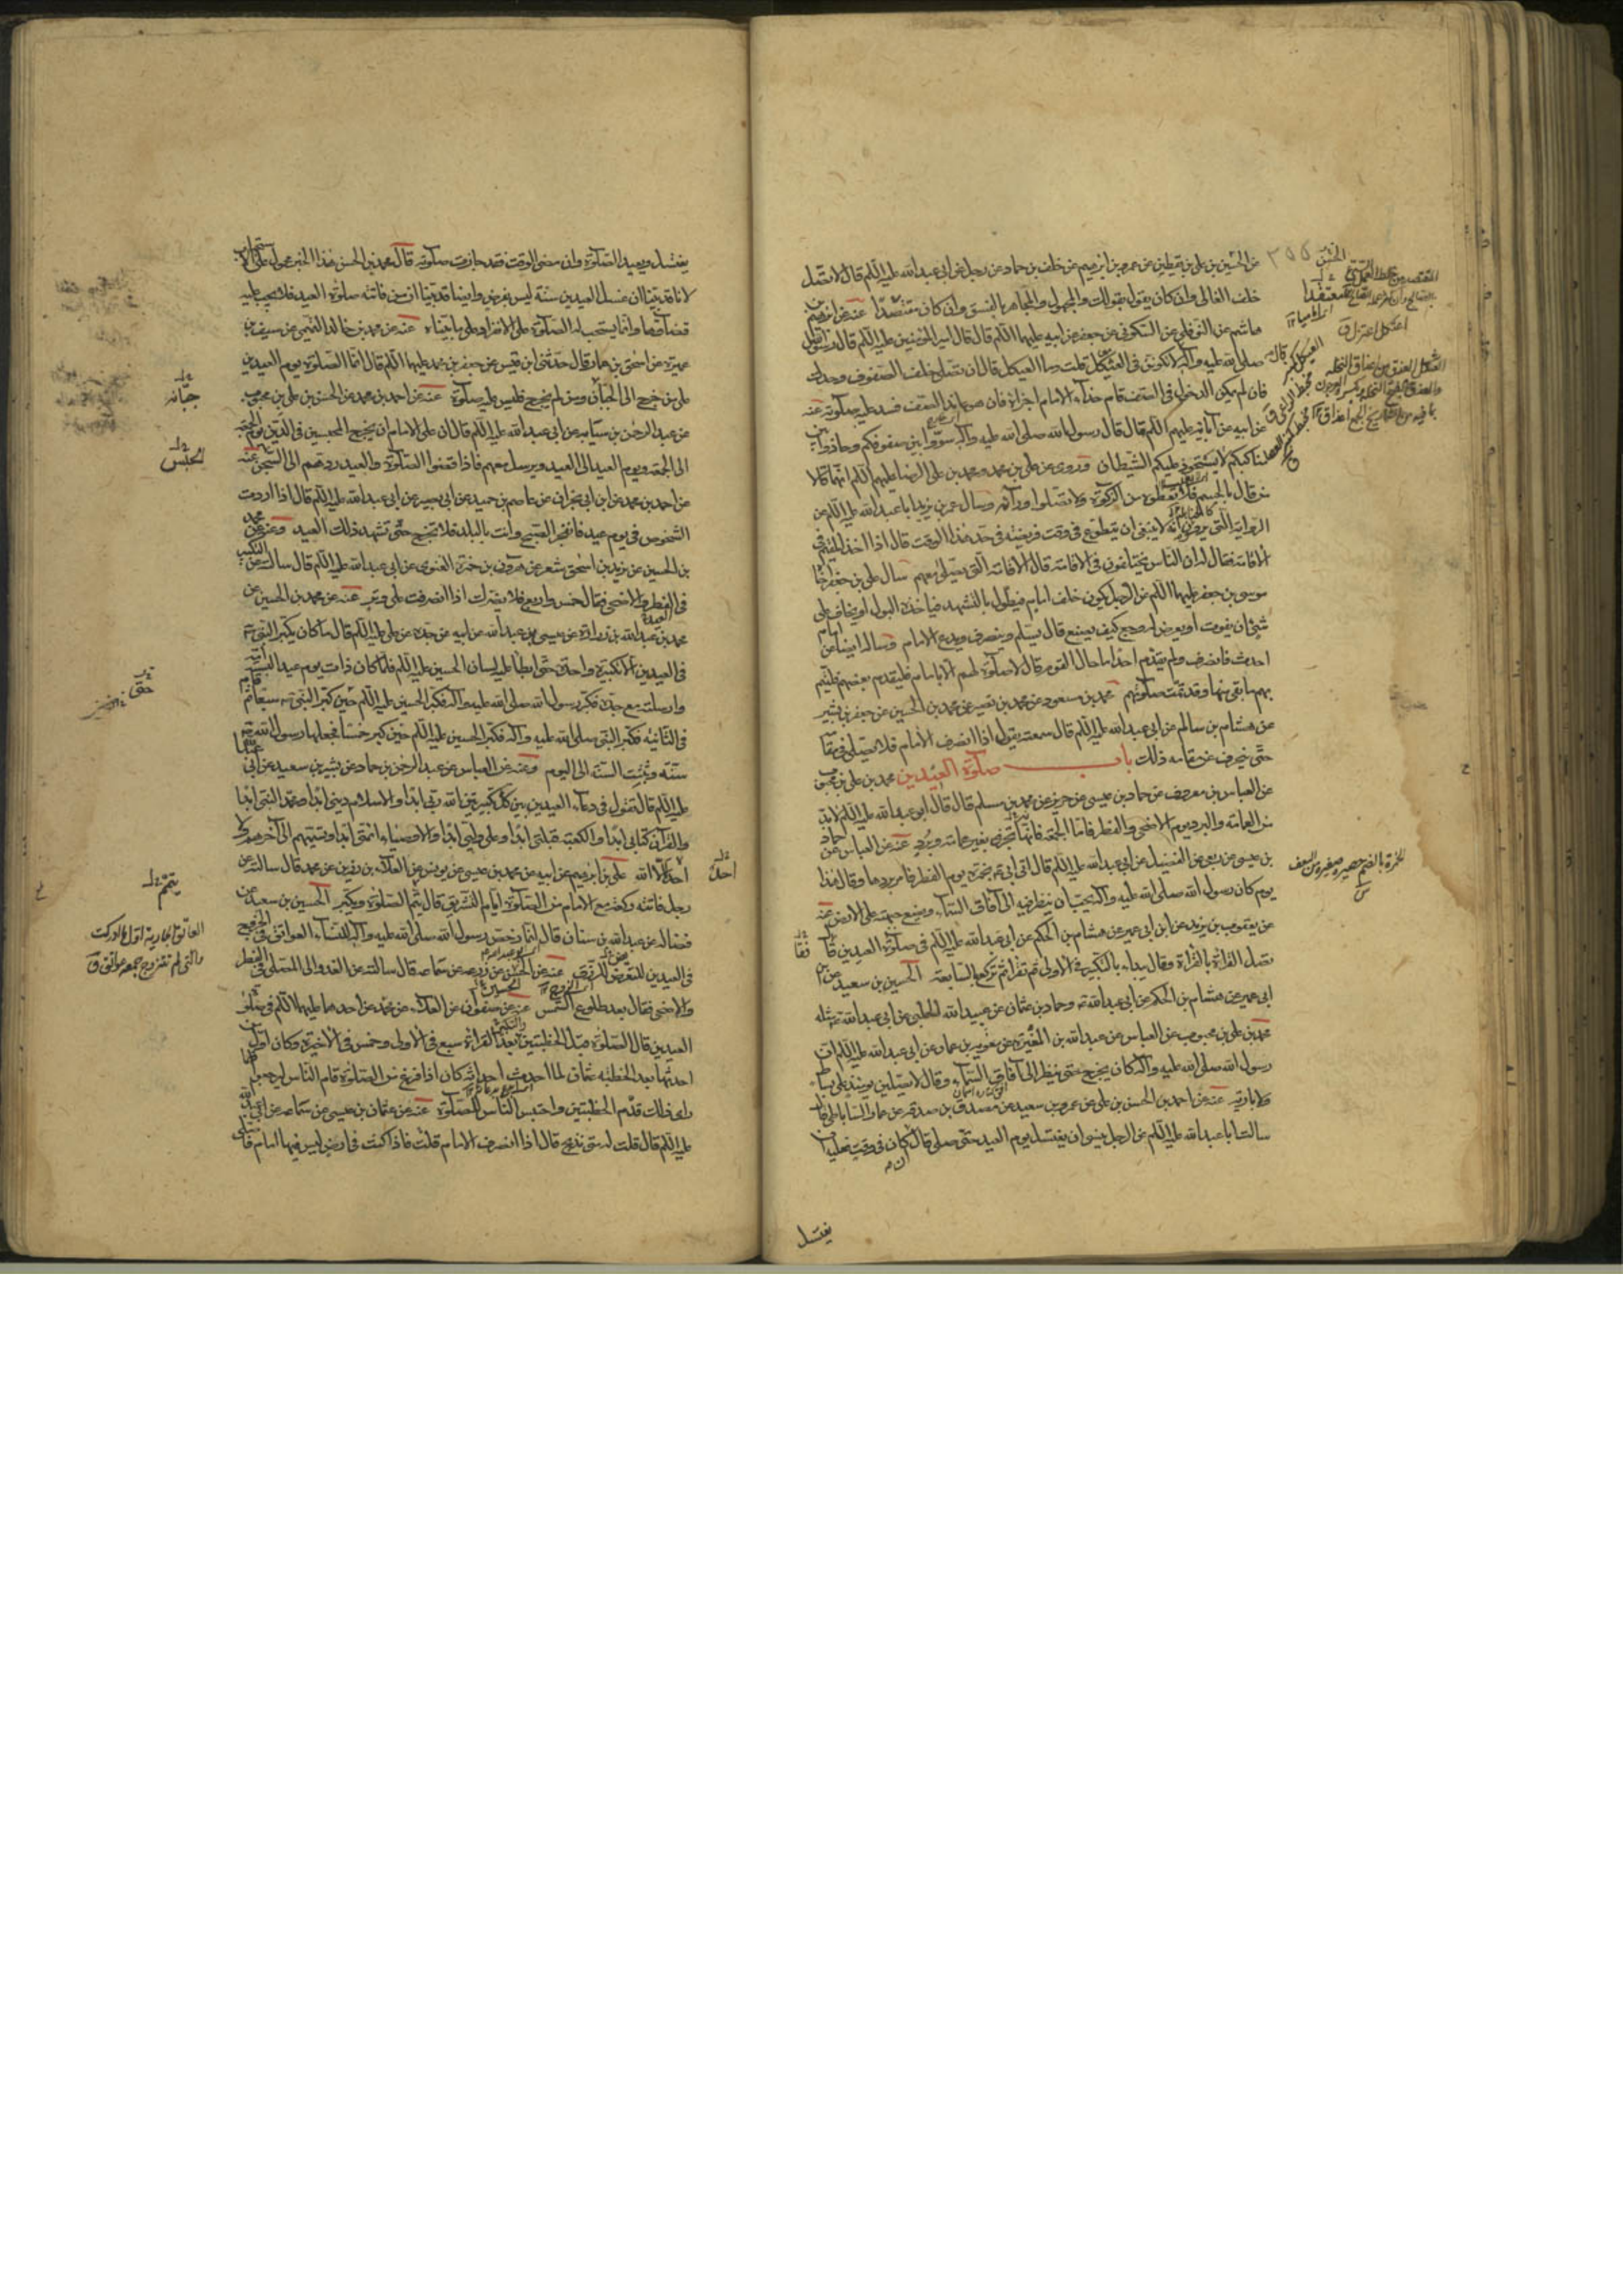 عن الحسين بن علي بن يقطين عن عمرو بن ابرهيم عن خلف بن حماد عن رجل عن ابي عبدالله عليه السلم قال لا تصل
خلف الغالي وان كان يقول بقولك والمجهول والمجاهر بالفسق وان كان مقتصدا عنه عن ابرهيم بن
هاشم عن النوفلي عن السكوني عن جعفر عن ابيه عليهما السلم قال قال امير المؤمنين عليه السلم قال رسول الله
صلى الله عليه وآله لا تكونن في العيكل قلت وما العيكل قال ان تصلي خلف الصفوف وحدك
فان لم يمكن الدخول في الصف قام حذاء الامام اجزاه فان هو عاند الصف فسد عليه صلوته عنه
عن ابيه عن آبائه عليهم السلم قال قال رسول الله صلى الله عليه وآله سووا بين صفوفكم وحاذوا بين
مناكبكم لا يستحوذ عليكم الشيطان وروى عن علي بن محمد ومحمد بن علي الرضا عليهم السلم انهما قالا
من قال بالجسم فلا تعطوه من الزكوة ولا تصلوا وراءه وسال عمر بن يزيد ابا عبدالله عليه السلم عن
الرواية التي يروون انه لا ينبغي ان يتطوع في وقت فريضة ما حد هذا الوقت قال اذا اخذ المقيم في
الاقامة فقال له ان الناس يختلفون في الاقامة قال الاقامة التي يصلى معهم سال علي بن جعفر اخاه
موسى بن جعفر عليهما السلم عن الرجل يكون خلف امام فيطول بالتشهد فياخذه البول او يخاف على
شئ ان يفوت او يعرض له وجع كيف يصنع قال يسلم وينصرف ويدع الامام وساله ايضا عن امام
احدث فانصرف ولم يقدم احدا ما حال القوم قال لا صلوة لهم الا بامام فليقدم بعضهم فليتم
بهم ما بقي منها وقد تمت صلوتهم محمد بن مسعود عن محمد بن نصير عن محمد بن الحسين عن جعفر بن بشير
عن هشام بن سالم عن ابي عبدالله عليه السلم قال سمعته يقول اذا انصرف الامام فلا يصلي في مقامه
حتى ينحرف عن مقامه ذلك باب صلوة العيدين محمد بن علي بن محبوب
عن العباس بن معروف عن حماد بن عيسى عن حريز عن محمد بن مسلم قال قال ابو عبدالله عليه السلم لابد
من العمامة والبرد يوم الاضحى والفطر فاما الجمعة فانها تجزي بغير عمامة وبرد عنه عن العباس عن حماد
بن عيسى عن ربعي عن الفضيل عن ابي عبدالله عليه السلم قال اتى ابي بخمرة يوم الفطر فامر بردها وقال هذا
يوم كان رسول الله صلى الله عليه وآله يحب ان ينظر فيه الى آفاق السماء ويضع جبهته على الارض عنه
عن يعقوب بن يزيد عن ابن ابي عمير عن هشام بن الحكم عن ابي عبدالله عليه السلم في صلوة العيدين قال
تصل القراءة بالقراءة وقال يبداء بالتكبير في الاولى ثم تقرا ثم تركع بالسابعة الحسين بن سعيد عن ابن
ابي عمير عن هشام بن الحكم عن ابي عبدالله وحماد بن عثمان عن عبيد الله الحلبي عن ابي عبدالله مثله
محمد بن علي بن محبوب عن العباس عن عبدالله بن المغيرة عن معوية بن عمار عن ابي عبدالله عليه السلم ان
رسول الله صلى الله عليه وآله كان يخرج حتى ينظر الى آفاق السماء وقال لا تصلين يومئذ على بساط
ولا بارية عنه عن احمد بن الحسن بن علي عن عمرو بن سعيد عن مصدق بن صدقة عن عمار الساباطي قال
سالت ابا عبدالله عليه السلم عن الرجل ينسى ان يغتسل يوم العيد حتى صلى قال ان كان في وقت فعليه ان
يغتسل
الخمرة بالضم حصيرة صغيرة من السعف
يغتسل ويعيد الصلوة وان مضى الوقت فقد جازت صلوته قال محمد بن الحسن هذا الخبر محمول على الاستحباب
لانا قد بينا ان غسل العيدين سنة ليس بفرض وايضا قد بينا ان من فاتته صلوة العيد فلا يجب عليه
قضاؤها وانما يستحب له الصلوة على الانفراد على ما بيناه عنه عن محمد بن خالد التميمي عن سيف بن
عميرة عن اسحق بن عمار قال حدثني ابن قيس عن جعفر بن محمد عليهما السلم قال انما الصلوة يوم العيدين
على من خرج الى الجبان ومن لم يخرج فليس عليه صلوة عنه عن احمد بن محمد عن الحسن بن علي بن محبوب
عن عبد الرحمن بن سيابة عن ابي عبدالله عليه السلم قال ان على الامام ان يخرج المحبسين في الدين يوم الجمعة
الى الجمعة ويوم العيد الى العيد ويرسل معهم فاذا قضوا الصلوة والعيد ردهم الى السجن عنه
عن احمد بن محمد عن ابن ابي نجران عن عاصم بن حميد عن ابي بصير عن ابي عبدالله عليه السلم قال اذا اردت
الشخوص في يوم عيد فانفجر الصبح وانت بالبلد فلا تخرج حتى تشهد ذلك العيد وعنه عن محمد
بن الحسين عن يزيد بن اسحق شعر عن هرون بن حمزة الغنوي عن ابي عبدالله عليه السلم قال سالته عن التكبير
في الفطر والاضحى فقال خمس واربع فلا يضرك اذا انصرفت على وتر عنه عن محمد بن الحسين عن
محمد بن عبدالله بن زرارة عن عيسى بن عبدالله عن ابيه عن جده عن علي عليه السلم قال ما كان يكبر النبي
في العيدين الا تكبيرة واحدة حتى ابطا عليه لسان الحسين عليه السلم فلما كان ذات يوم عيد البسته امه
وارسلته مع جده فكبر رسول الله صلى الله عليه وآله فكبر الحسين عليه السلم حين كبر النبي سبعا ثم قام
في الثانية فكبر النبي صلى الله عليه وآله فكبر الحسين عليه السلم حين كبر خمسا فجعلها رسول الله
سنة وثبتت السنة الى اليوم وعنه عن العباس عن عبد الرحمن بن حماد عن بشير بن سعيد عن ابي عبدالله
عليه السلم قال تقول في دعاء العيدين بين كل تكبيرتين الله ربي ابدا والاسلام ديني ابدا محمد النبي ابدا
والقرآن كتابي ابدا والكعبة قبلتي ابدا وعلي وليي ابدا والاوصياء ائمتي ابدا وتسميهم الى آخرهم ولا
احد الا الله علي بن ابرهيم عن ابيه عن محمد بن عيسى عن يونس عن العلاء بن رزين عن محمد قال سالته عن
رجل فاتته ركعة مع الامام من الصلوة ايام التشريق قال يتم الصلوة ويكبر الحسين بن سعيد عن
فضالة عن عبدالله بن سنان قال انما رخص رسول الله صلى الله عليه وآله للنساء العواتق في الخروج
في العيدين للتعرض للرزق عنه عن الحسن عن زرعة عن سماعة قال سالته عن الغدو الى المصلى في الفطر
والاضحى فقال بعد طلوع الشمس عنه عن صفوان عن العلاء عن محمد عن احدهما عليهما السلم في صلوة
العيدين قال الصلوة قبل الخطبتين بعد القراءة سبع في الاولى وخمس في الاخيرة وكان اول من
احدثها بعد الخطبة عثمان لما احدث احداثه كان اذا فرغ من الصلوة قام الناس ليرجعوا فلما
راى ذلك قدم الخطبتين واحتبس الناس للصلوة عنه عن عثمان بن عيسى عن سماعة عن ابي عبدالله
عليه السلم قال قلت له متى نذبح قال اذا انصرف الامام قلت فاذا كنت في ارض ليس فيها امام فاصلي
جبانة
الحبس
احدا
يتم
العاتق الجارية اول ما ادركت
والتي لم تتزوج جمعه عواتق ق